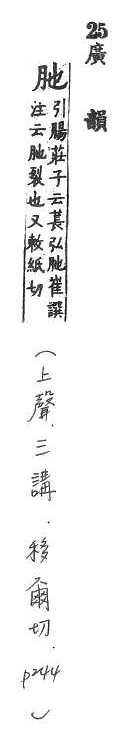 25廣韻
胣引腸莊子云萇弘胣崔譔
注云胣裂也又敕紙切
(上聲.三講.移爾切.p244)